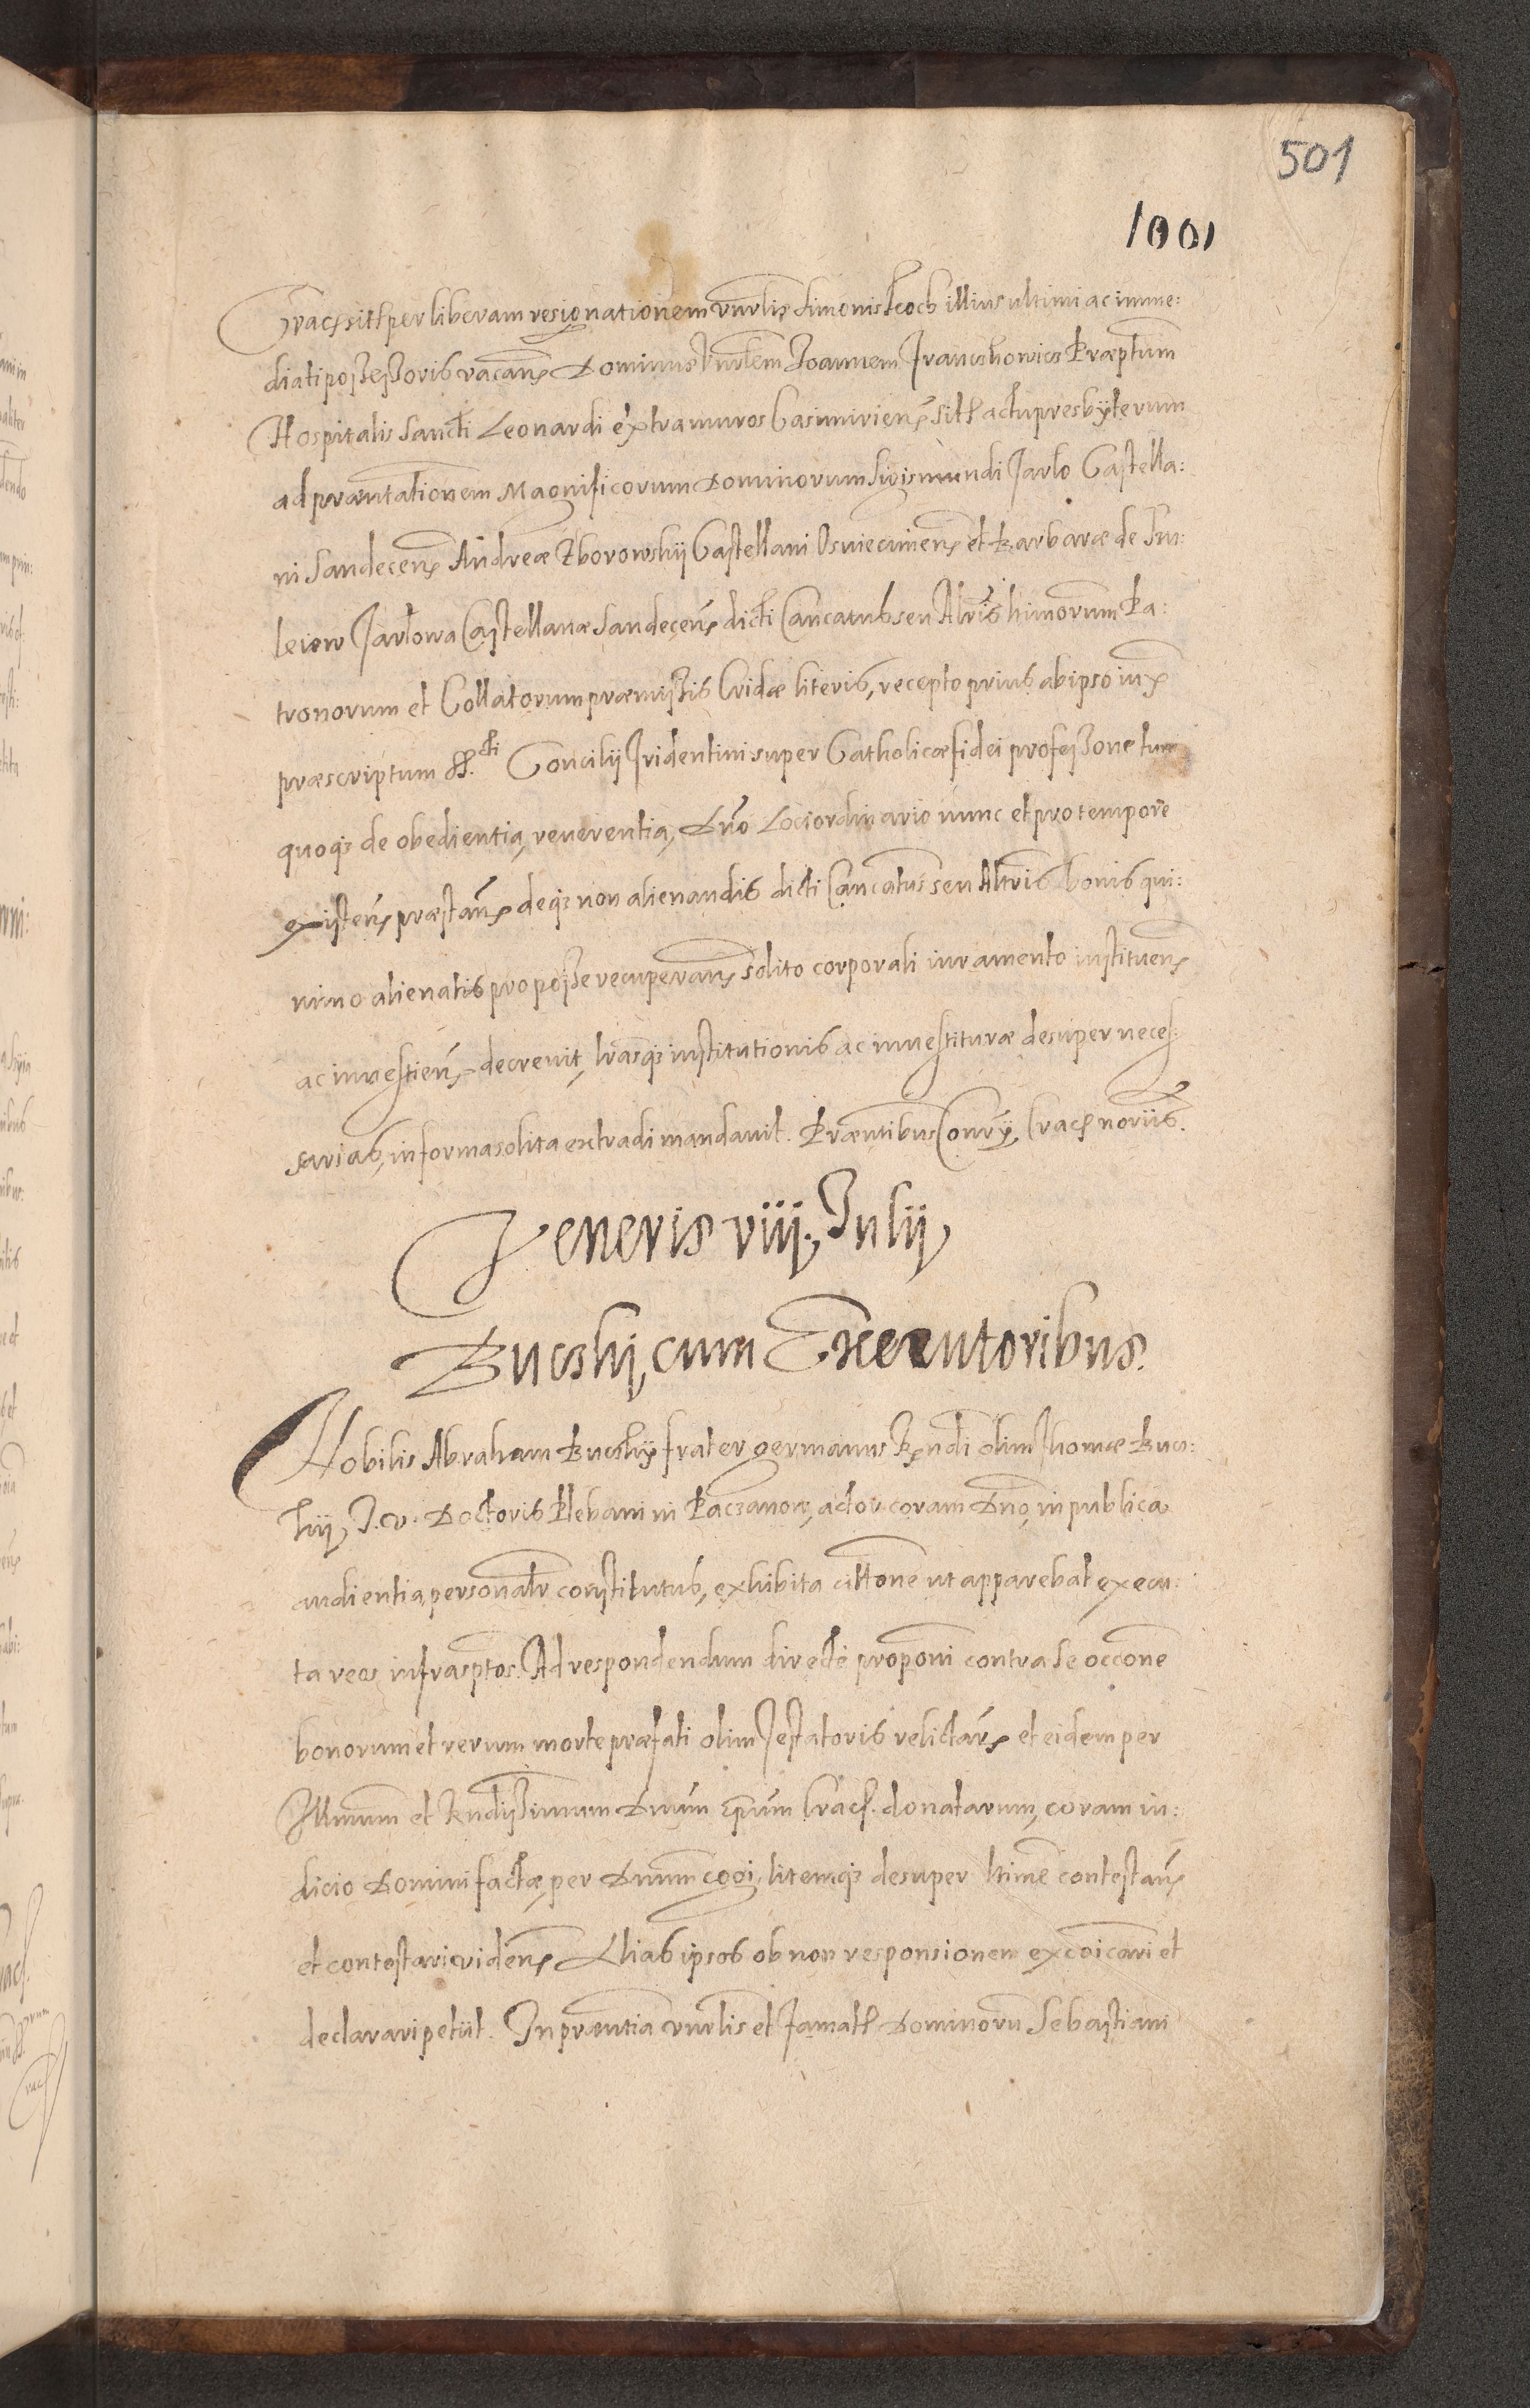 501
1001
Crac: sit per liberam resignationem vnrlis Simonis Ploch illius ultimi ac imme:
diati possessoris vacan: Dominus vnrlem Joannem Franczkowicz Præptum
Hospitalis Sancti Leonardi extra muros Casimirien: sit actu presbyterum
ad præntationem Magnificorum Dominorum Sigismundi Jarlo Castella:
ni Sandecen: Andreæ Zborowskij Castellani Osviecimen: et Barbaræ de
Jarlowa Castellanæ Sandecen: dicti Cancatus seu Altris Pa:
tronorum et Collatorum præmissis Cridæ literis, recepto prius ab ipso iux:
præscriptum SS.cti Concilij Tridentini super Catholicæ fidei professione tum
quoq; de obedientia, reverentia, Dno Loci ordinario nunc et pro tempore
existen: præstan: deq; non alienandis dicti Cancatus seu Altris bonis qui:
nimo alienatis pro posse recuperan: solito corporali iuramento instituen:
ac investien: decrevit, lrasq; institutionis ac investituræ desuper neces:
sarias, in forma solita extradi mandavit. Præntibus Conrÿ, Crac: noriis.
Veneris viij. Julij
Buczkij, cum Executoribus.
Nobilis Abraham Buczkij frater germanus Rndi olim Thomæ Bucz:
kij, J. V. Doctoris Plebani in Paczanow, actor coram Dno, in publica
audientia, personalr constitutus, exhibita cittone ut apparebat execu:
ta reos infrasptos. Ad respondendum directe proponi contra se occone
bonorum et rerum morte præfati olim Testatoris relictar: et eidem per
Illmum et Rndissimum Dnum Epum Crac: donatarum, coram iu:
dicio Domini factæ, per Dnum cogi, litemq; desuper ltime contestan:
et contestari viden: Alias ipsos ob non responsionem excoicari et
declarari petiit. In præntia vnrlis et Famati Dominorū Sebastiani